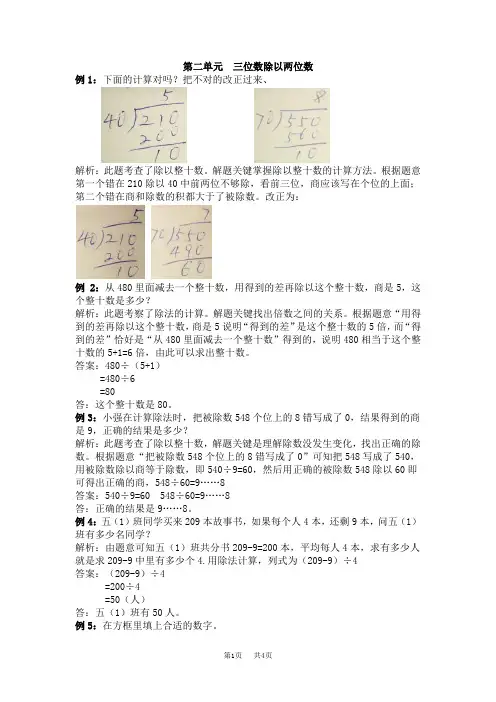 第二单元 三位数除以两位数
例1：下面的计算对吗？把不对的改正过来、
5
40)210
200
10
8
70)550
560
10
解析：此题考查了除以整十数。解题关键掌握除以整十数的计算方法。根据题意
第一个错在210除以40中前两位不够除，看前三位，商应该写在个位的上面；
第二个错在商和除数的积都大于了被除数。改正为：
5
40)210
200
10
7
70)550
490
60
例2：从480里面减去一个整十数，用得到的差再除以这个整十数，商是5，这
个整十数是多少？
解析：此题考察了除法的计算。解题关键找出倍数之间的关系。根据题意“用得
到的差再除以这个整十数，商是5说明“得到的差”是这个整十数的5倍，而“得
到的差”恰好是“从480里面减去一个整十数”得到的，说明480相当于这个整
十数的5+1=6倍，由此可以求出整十数。
答案：480÷（5+1）
=480÷6
=80
答：这个整十数是80。
例3：小强在计算除法时，把被除数548个位上的8错写成了0，结果得到的商
是9，正确的结果是多少？
解析：此题考查了除以整十数，解题关键是理解除数没发生变化，找出正确的除
数。根据题意“把被除数548个位上的8错写成了0”可知把548写成了540，
用被除数除以商等于除数，即540÷9=60，然后用正确的被除数548除以60即
可得出正确的商，548÷60=9……8
答案：540÷9=60 548÷60=9……8
答：正确的结果是9……8。
例4：五（1）班同学买来209本故事书，如果每个人4本，还剩9本，问五（1）
班有多少名同学？
解析：由题意可知五（1）班共分书209-9=200本，平均每人4本，求有多少人
就是求209-9中里有多少个4.用除法计算，列式为（209-9）÷4
答案：（209-9）÷4
=200÷4
=50（人）
答：五（1）班有50人。
例5：在方框里填上合适的数字。
第1页 共4页